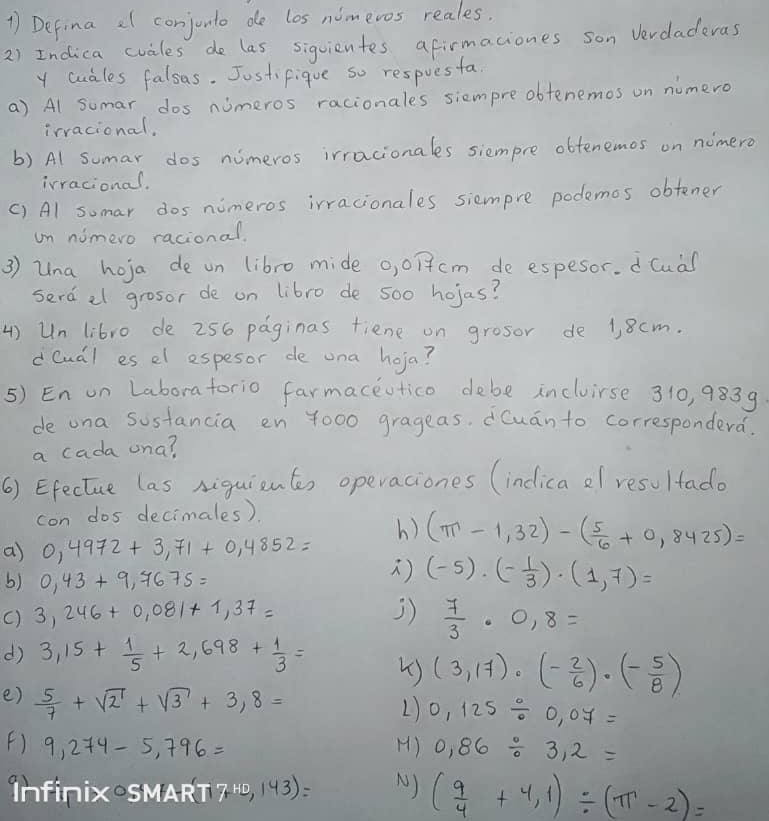 1) Defina el conjunto de los números reales.
2) Indica cuáles de las siguientes afirmaciones son verdaderas
y cuáles falsas. Justifique su respuesta.
a) Al sumar dos números racionales siempre obtenemos un número
irracional.
b) Al sumar dos números irracionales siempre obtenemos un número
irracional.
c) Al sumar dos números irracionales siempre podemos obtener
un número racional.
3) Una hoja de un libro mide 0,017cm de espesor. ¿Cuál
será el grosor de un libro de 500 hojas?
4) Un libro de 256 páginas tiene un grosor de 1,8cm.
¿Cuál es el espesor de una hoja?
5) En un Laboratorio farmacéutico debe incluirse 310,983g.
de una sustancia en 7000 grageas. ¿Cuánto corresponderá.
a cada una?
6) Efectue las siguientes operaciones (indica el resultado
con dos decimales).
a) 0,4972 + 3,71 + 0,4852 =
b) 0,43 + 9,7675 =
c) 3,246 + 0,081 + 1,37 =
d) 3,15 + 1/5 + 2,698 + 1/3 =
e) 5/7 + √2 + √3 + 3,8 =
f) 9,274 - 5,796 =
,143) =
h) (π - 1,32) - (5/6 + 0,8425) =
i) (-5) . (-1/3) . (1,7) =
j) 7/3 . 0,8 =
k) (3,17) . (-2/6) . (-5/8)
L) 0,125 ÷ 0,07 =
M) 0,86 ÷ 3,2 =
N) (9/4 + 4,1) ÷ (π - 2) =
Infinix SMART 7 HD